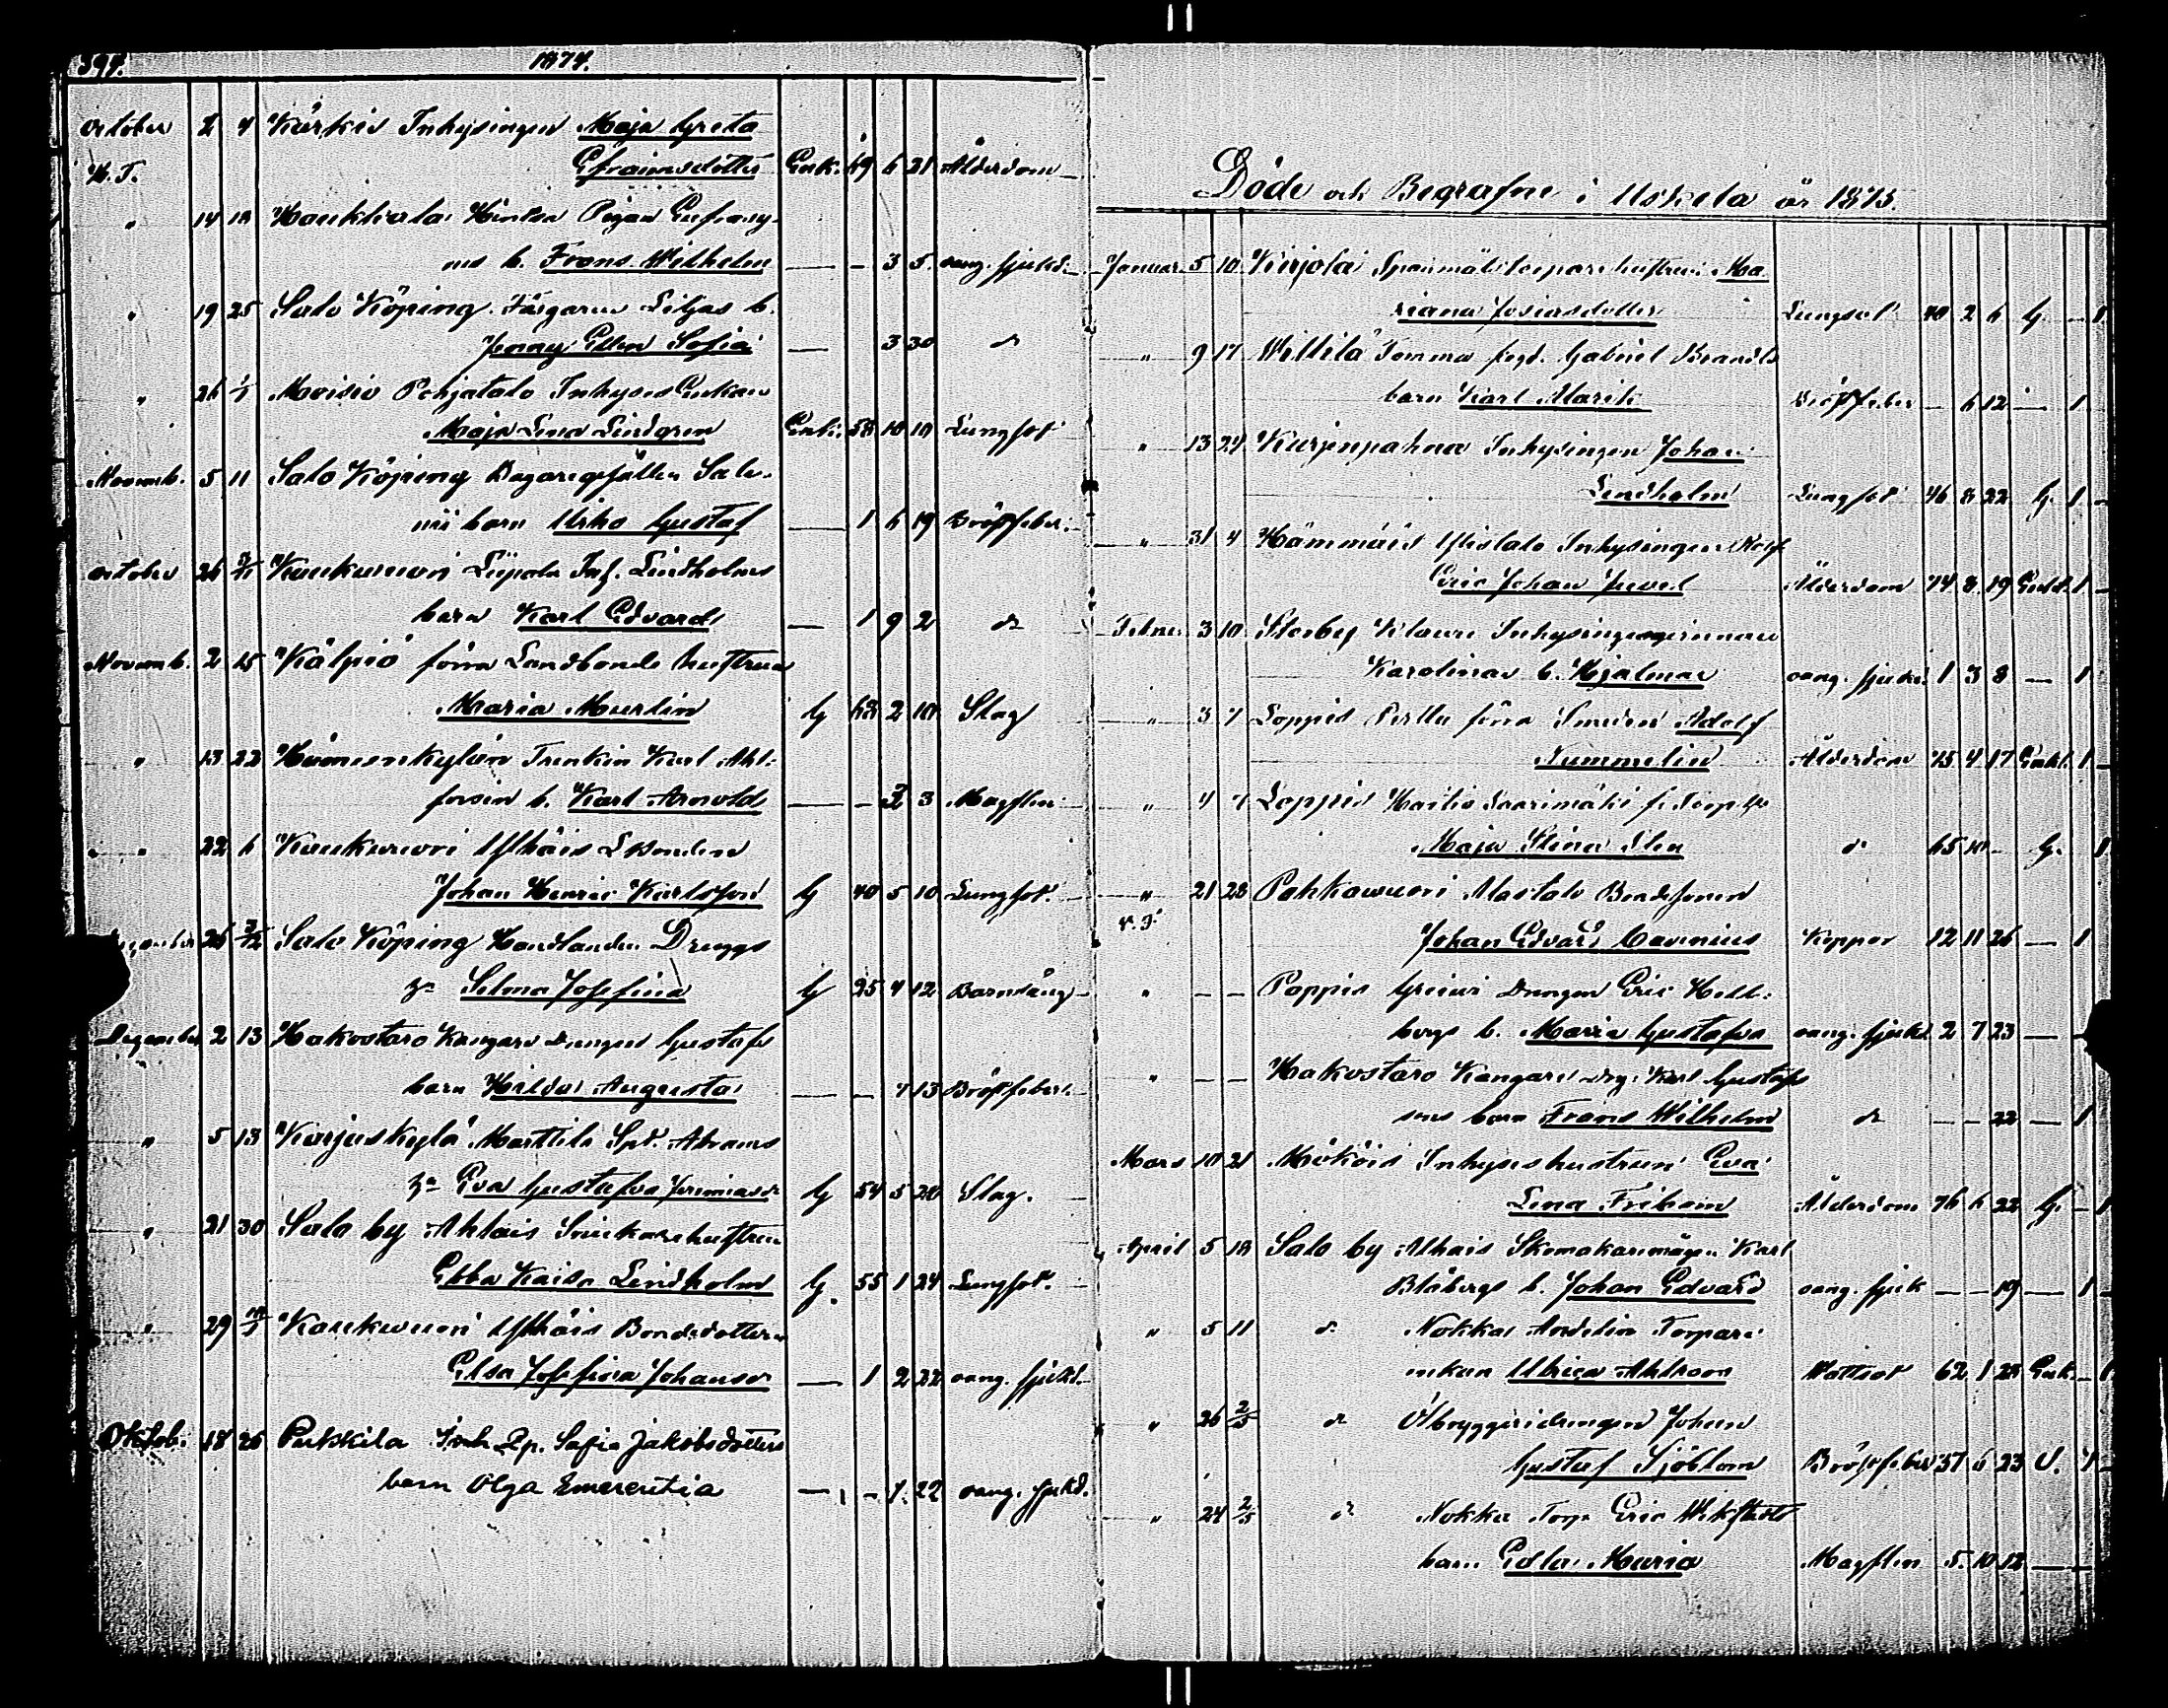 1874.
October 2 4 Kärkis Inhysingen Maja Greta
N.T. Efraimsdotter Enk. 69 6 21 Ålderdom
" 14 18 Haukkala Pigan
b. Frans Wilhelm — - 3 5. oang. sjukd.
" 19 25 Salo Köping Färgaren Liljas b.
Jenny Ellen Sofia — 3 30 d:o
" 26 1/1 Moisio Pohjatalo Inhyses Enkan
Maja Lena Lindgren Enk. 58 10 10 Lungsot
Novemb. 5 11 Salo Köping Bagaregesällen Sale-
nii barn Urho Gustaf — 1 6 19 Bröstfeber.
October 26 Kaukwuori Liipola Inh. Lindholms
barn Karl Edvard — 1 9 2 d:o
Novemb. 2 15 Kälpiö förra Landbonde hustrun
Maria Murlin G 63 2 10 Slag
" 13 22 Hämeenkylän Karl Ahl-
b. Karl Arnold — - 3 Magflen
" 22 6 Kaukwuori Ylhäis LBonden
Johan Henric Karlsson G 40 5 10 Lungsot.
26 3/12 Salo Köping Handlanden Druggs
h:u Selma Josefina G 25 4 12 Barnsäng
December 2 13 Hakostaro Kangars Drengen Gustafs
barn Hilda Augusta — — 7 13 Bröstfeber.
" 5 13 Karjaskylä Marttila Spt. Abrams
h:u Eva Gustafva Jeremiasd:r G 54 5 20 Slag.
" 21 30 Salo by Ahlais Snickare hustrun
Ebba Kaisa Lindholm G. 55 1 24 Lungsot.
" 29 10/1 Kaukwuori Ylhäis Bondedottren
Elsa Josefina Johansd:r — 1 2 22 oang. sjukd.
Oktob. 18 26 Pukkila Inh. Qp. Sofia Jakobsdotters
barn Olga Emerentia — - 1. 22 oang. sjukd.
Döde och Begrafne i Uskela år 1875.
Januar. 5 10 Kirjola hustrun Ma
riana Josiasdotter Lungsot 40 2 6 G. — 1
" 9 17 Wiltilä Gabriel Brands
barn Karl Bröstfeber — 6 12 — 1
" 13 24 Kurjenpahna Inhysingen Johan
Lindholm Lungsot 46 8 22 G. 1 —
" 31 4 Hämmäis Ylistalo Inhysingen
Eric Johan Juvel Ålderdom 74 8 19 Enkl. 1 —
Februar 3 10 Storby Klawu Inhysingeqvinnan
Karolinas b. Hjalmar oang. sjukd. 1 3 8 — 1
" 3 7 Loppis Perttu förra Smeden Adolf
Nummelin Ålderdom 75 4 17 Enkl. 1 —
" 4 7 Loppis
Maja Stina Sten d:o 65 10 — G. 1
" 21 28 Pahkawuori Alastalo Bondesonen
N.T. Johan Edvard Koppor 12 11 26 — 1
" — — Pappis Drengen Eric Hell-
bergs b. Maria Gustafva oang. sjukd. 2 7 23 —
" — — Hakostaro Kangars Drg. Karl Gustafs
sons barn Frans Wilhelm d:o — — 22 — 1
Mars 10 21 Mököis Inhyses hustrun Eva
Lena Friberg Ålderdom 76 6 22 G. — 1
April 5 18 Salo by Alhais Skomakaremågen Karl
Blåbergs b. Johan Edvard oang. sjuk — — 19 — 1
" 5 11 d:o Nokka Andelin Torpare
enkan Ulrica Ahlroos Wattsot 62 1 28 Enk. — 1
" 26 2/5 d:o Ölbryggeridrengen Johan
Gustaf Sjöblom Bröstfeber 37 6 23 O. 1
" 24 2/5 d:o Nokka Torp. Eric
barn Edla Maria Magflen 5. 10 12 — —